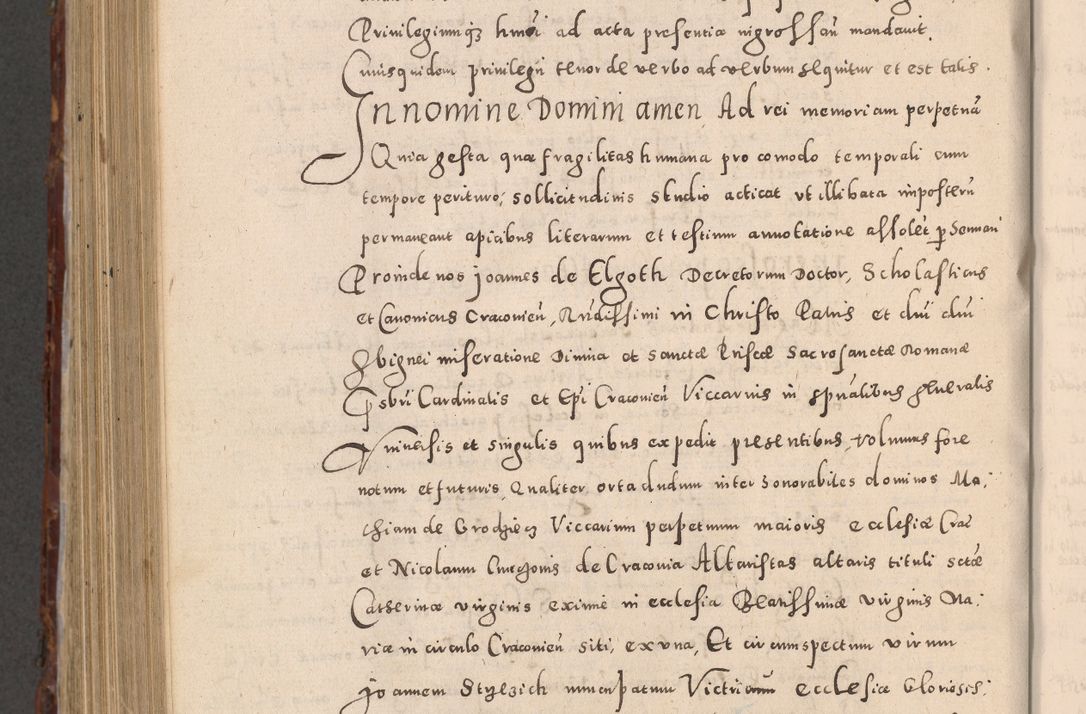 Priuilegiumq3 hmōi ad acta presentia ingrossari mandauit.
Cuiusquidem priuilegii tenor de verbo ad verbum sequitur et est talis.
In nomine Domini amen Ad rei memoriam perpetuā
Quia gesta quae fragilitas humana pro comodo temporali cum
tempore perituro, sollicitudinis studio acticat vt illibata imposterū
permaneant apicibus literarum et testium annotatione assolet p
Proinde nos Joannes de Elgoth Decretorum Doctor, Scholasticus
et Canonicus Cracouieñ, Rndissimi in Christo Patris et dni dni
Zbignei miseratione Diuina et sanctæ Priscæ Sacrosanctæ Romanæ
Psbri Cardinalis et Epi Cracouieñ Viccarius in spualibus gñeralis
Vniuersis et singulis quibus expedit presentibus, volumus fore
notum et futuris, Qualiter orta dudum inter honorabiles dominos Ma,
thiam de Grodziecz Viccarium perpetuum maioris ecclesiæ Crac
et Nicolaum de Cracouia Altaristas altaris tituli sctæ
Catherinæ virginis eximie in ecclesia Beatissimæ virginis Ma,
riæ in circulo Cracouieñ siti, ex vna, Et circumspectum virum
Joannem Stylzich nuncupatum Victricum ecclesiæ Gloriosis,